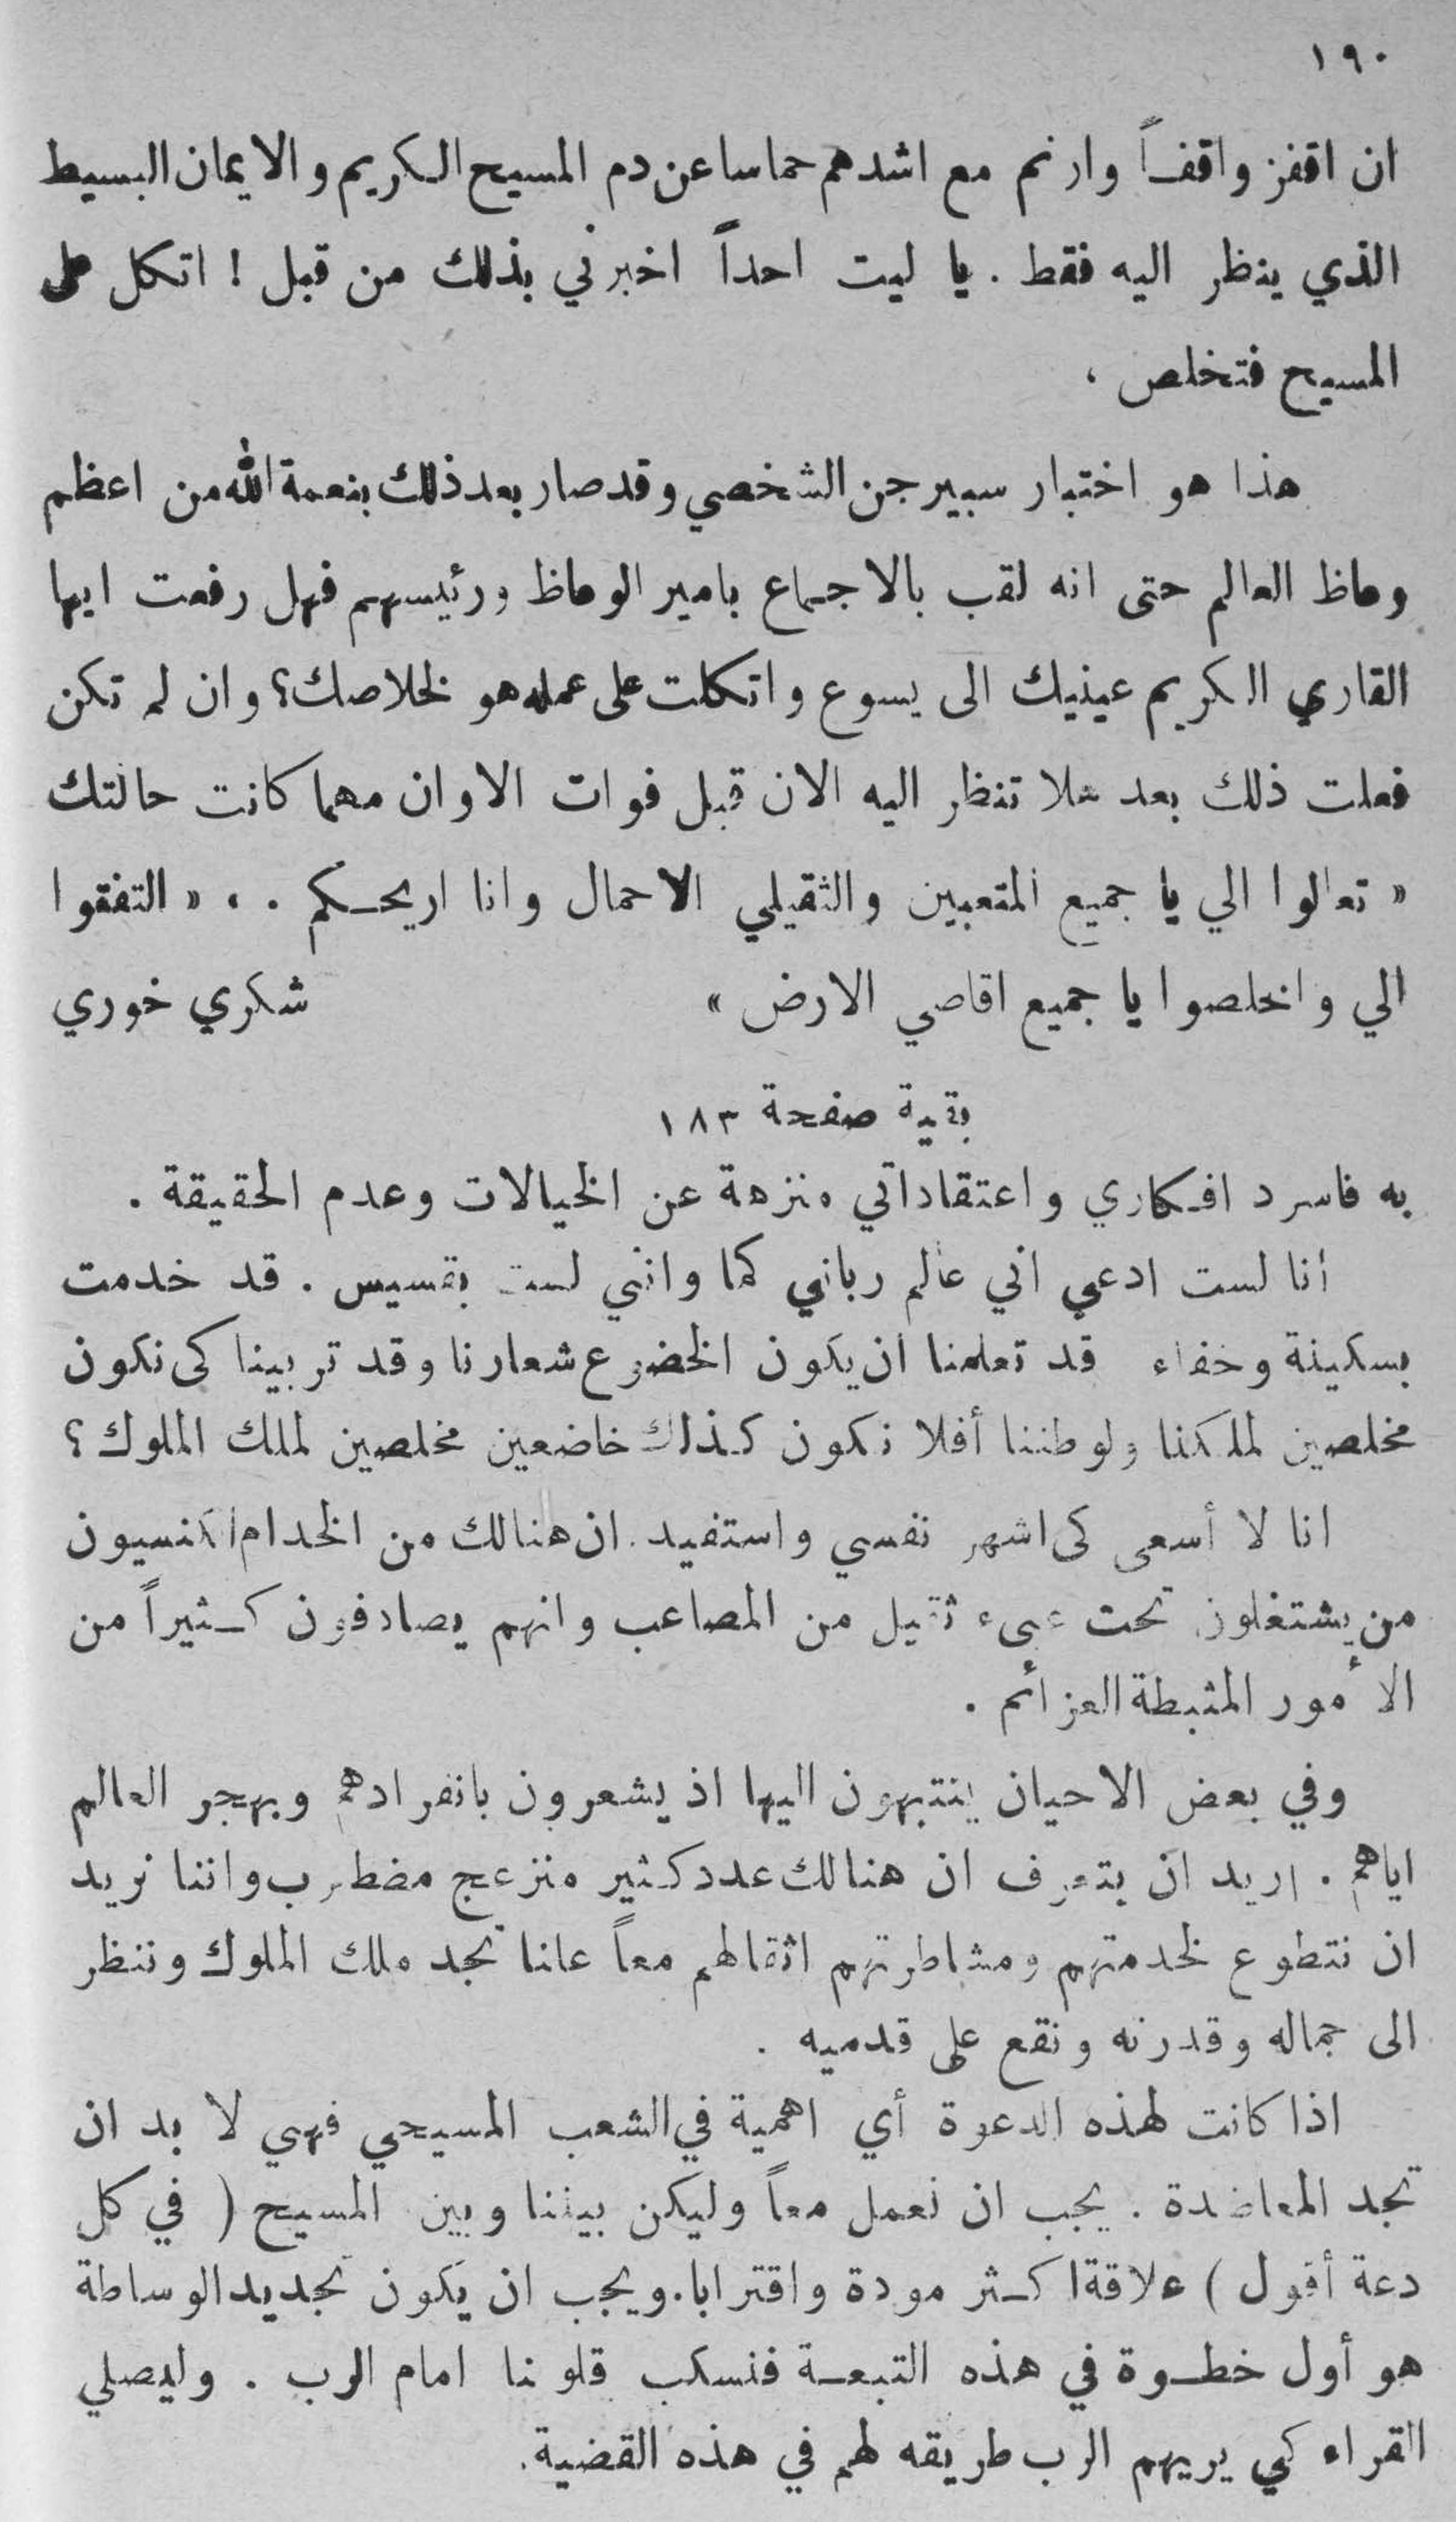 ١٩٠
ان اقفز واقفاً وارنم مع اشدهم حماسا عن دم المسيح الكريم والايمان البسيط
الذي ينظر اليه فقط . يا ليت احداً اخبرني بذلك من قبل ! اتكل على
المسيح فتخلص ،
هذا هو اختبار سبيرجن الشخصي وقد صار بعد ذلك بنعمة الله من اعظم
وعاظ العالم حتى انه لقب بالاجماع بامير الوعاظ ورئيسهم فهل رفعت ايها
القاري الكريم عينيك الى يسوع واتكلت على عمله هو لخلاصك؟ وان لم تكن
فعلت ذلك بعد هلا تنظر اليه الان قبل فوات الاوان مهما كانت حالتك
« تعالوا الي يا جميع المتعبين والثقيلي الاحمال وانا اريحكم . ، « التفقوا
الي واخلصوا يا جميع اقاصي الارض »
شكري خوري
بقية صفحة ١٨٣
به فاسرد افكاري واعتقاداتي منزهة عن الخيالات وعدم الحقيقة .
أنا لست ادعي اني عالم رباني كما وانني لست بقسيس . قد خدمت
بسكينة وخفاء قد تعلمنا ان يكون الخضوع شعارنا وقد تربينا كى نكون
مخلصين لملكنا ولوطننا أفلا نكون كذلك خاضعين مخلصين لملك الملوك ؟
انا لا أسعى كى اشهر نفسي واستفيد . ان هنالك من الخدام اكنسيون
من يشتغلون تحت عبىء ثقيل من المصاعب وانهم يصادفون كثيراً من
الأمور المثبطة العزائم .
وفي بعض الاحيان ينتبهون اليها اذ يشعرون بانفرادهم وبهجر العالم
اياهم . اريد ان يتعرف ان هنالك عدد كثير منزعج مضطرب واننا نريد
ان نتطوع لخدمتهم ومشاطرتهم اثقالهم معاً عانا نجد ملك الملوك وننظر
الى جماله وقدرته ونقع على قدميه .
اذا كانت لهذه الدعوة أي اهمية في الشعب المسيحي فهي لا بد ان
تجد المعاضدة . يجب ان نعمل معاً وليكن بيننا وبين المسيح ( في كل
دعة أقول ) علاقة اكثر مودة واقترابا . ويجب ان يكون تجديد الوساطة
هو أول خطوة في هذه التبعة فنسكب قلونا امام الرب . وليصلي
القراء كي يريهم الرب طريقه لهم في هذه القضية .